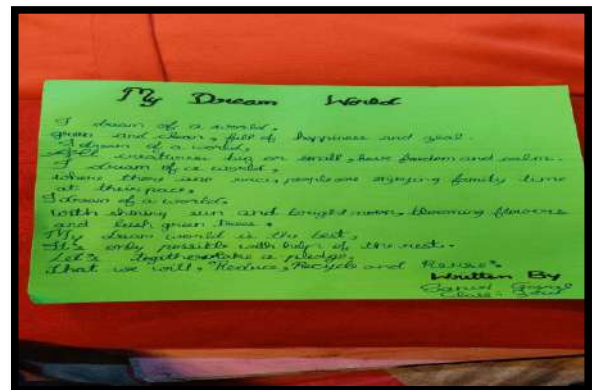 My Dream World
I dream of a world,
green and clean, full of happiness and zeal.
I dream of a world,
All creatures big or small, have freedom and
I dream of a world,
where there are people are enjoying family time
at their pace,
I dream of a world,
with shining sun and bright moon, blooming flowers
and lush green trees.
My dream world is the best,
It's only possible with help of the rest.
Let's together take a pledge,
That we will, "Reduce, Recycle and Reuse".
Written By
Class: